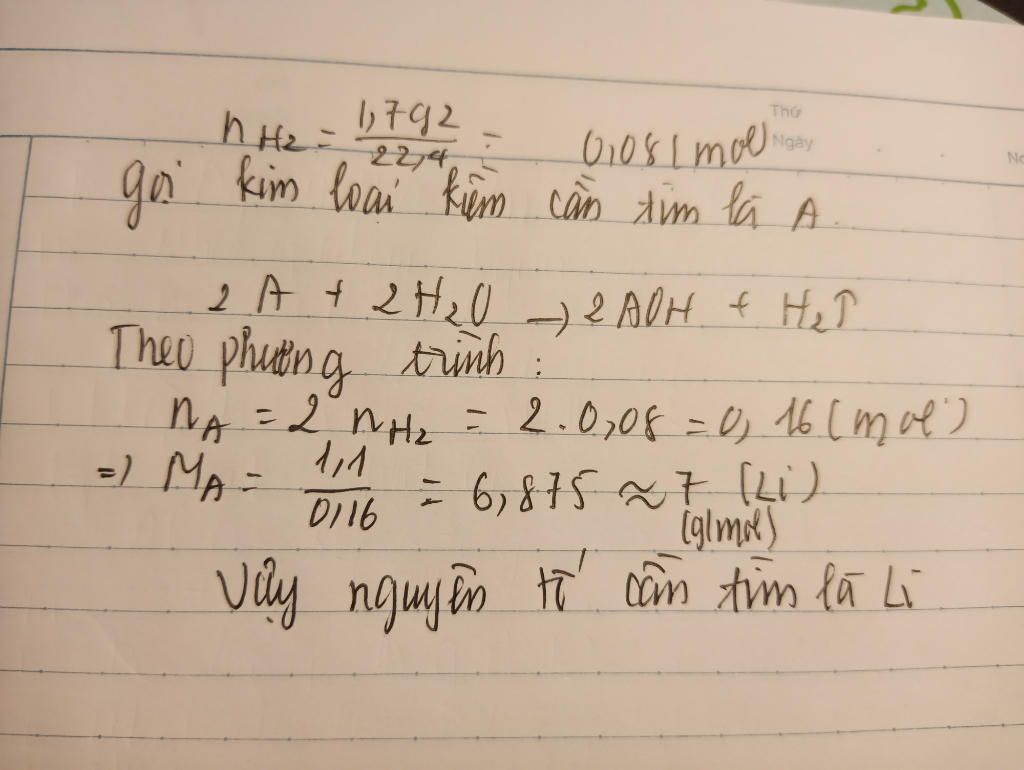 Thứ
Ngày
No
n H2 = 1,792/22,4 = 0,08 (mol)
gọi kim loại kiềm cần tìm là A.
2 A + 2 H2O → 2 AOH + H2↑
Theo phương trình :
nA = 2 nH2 = 2.0,08 = 0,16 (mol)
=) MA = 1,1/0,16 = 6,875 ≈ 7 (Li)
(g/mol)
Vậy nguyên tố cần tìm là Li